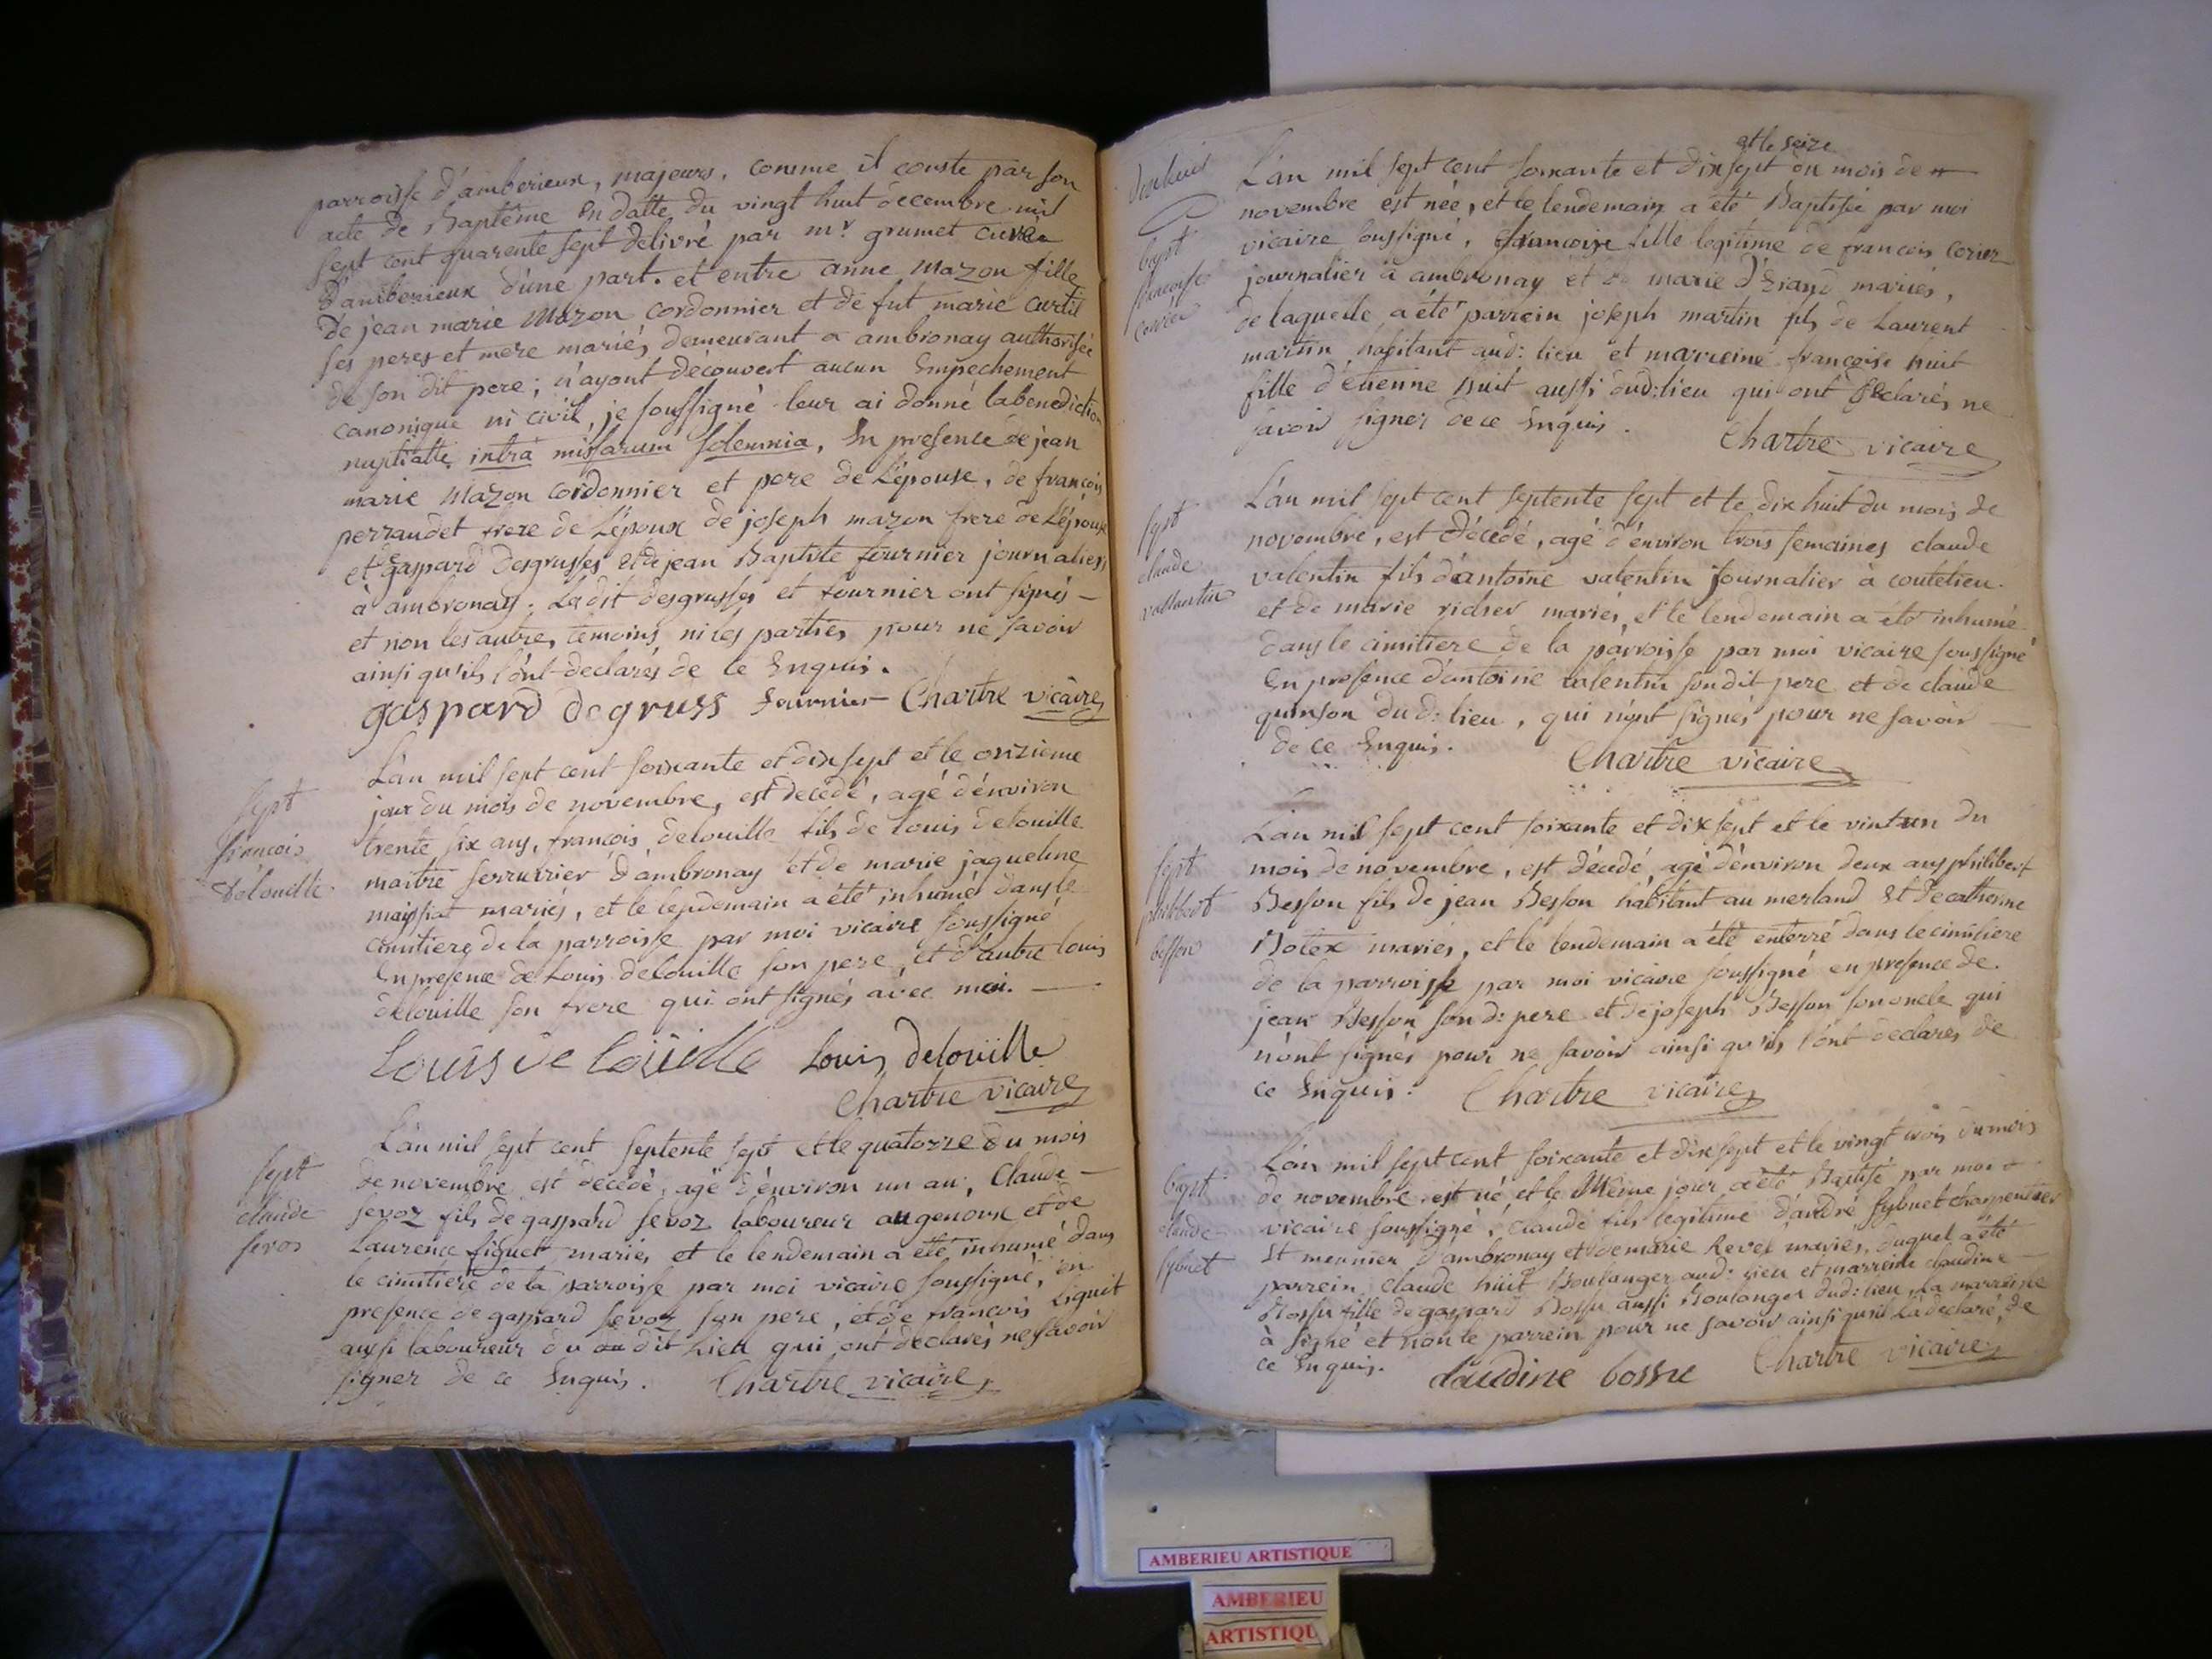 parroisse d'amberieux, majeurs, comme il conste par son
acte de Baptême en datte du vingt huit decembre mil
sept cent quarente sept delivré par mr. grumet curé
d'amberieux d'une part. et entre anne mazon fille
de jean marie Mazon cordonnier et de fut marie curtil
ses peres et mere mariés demeurant a ambronay authorisée
de son dit pere; n'ayont découvert aucun Empechement
canonique ni civil, je soussigné leur ai donné la benediction
nuptialle intrà missarum solemnia, En presence de jean
marie Mazon cordonnier et pere de l'épouse, de françois
perraudet frere de l'époux de joseph mazon frere de l'épouse
et de gaspard Desgrusses et de jean Baptiste fournier journaliers
à ambronay. Ledit desgrusses et fournier ont signés -
et non les autres temoins ni les parties pour ne savoir
ainsi qu'ils l'ont declarés de ce Enquis.
gaspard degruss fournier Chartre vicaire
L'an mil sept cent soixante et dix sept et le onzieme
jour du mois de novembre, est decédé, agé d'environ
trente six ans, françois delouille fils de louis delouille
maitre serrurier d'ambronay et de marie jaqueline
maissiat mariés, et le lendemain a été inhumé dans le
cimitiere de la parroisse par moi vicaire soussigné
En presence de Louis delouille son pere, et d'autre louis
delouille son frere qui ont signés avec moi. —
sept
françois
delouille
Louis de loüille Louis deloüille
Chartre vicaire
L'an mil sept cent septente sept et le quatorze du mois
de novembre est decedé, agé d'environ un an, Claude -
sevoz fils de gaspard sevoz laboureur au genoux et de
Laurence figuet mariés et le lendemain a été inhumé dans
le cimitiere de la parroisse par moi vicaire soussigné, en
presence de gaspard sevoz son pere, et de francois Liguet
aussi laboureur du au dit Lieu qui ont declarés ne savoir
signer de ce Enquis. Chartre vicaire
sept
claude
sevos
et le seize
L'an mil sept cent soixante et dix sept du mois de
novembre est née, et le lendemain a été Baptisée par moi
vicaire soussigné, françoise fille legitime de francois corier
journalier à ambronay et de marie mariés,
de laquelle a été parrein joseph martin fils de Laurent
martin habitant aud: lieu et marreine françoise huit
fille d'etienne huit aussi dud: lieu qui ont declarés ne
savoir signer de ce Enquis. Chartre vicaire
bapt
francoise
L'an mil sept cent septente sept et le dix huit du mois de
novembre, est décédé, agé d'environ trois semaines claude
valentin fils d'antoine valentin journalier à coutelieu
et de marie richer mariés, et le lendemain a été inhumé
dans le cimitiere de la parroisse par moi vicaire soussigné
En presence d'antoine valentin son dit pere et de claude
quinson dud: lieu, qui n'ont signés pour ne savoir
de ce Enquis. Chartre vicaire
sept
claude
vallentin
L'an mil sept cent soixante et dix sept et le vint un du
mois de novembre, est décédé, agé d'environ deux ans philibert
Besson fils de jean Besson habitant au merland et de catherine
Botex mariés, et le lendemain a été enterré dans le cimitiere
de la parroisse par moi vicaire soussigné en presence de
jean Besson son d: pere et de joseph Besson son oncle qui
n'ont signés pour ne savoir ainsi qu'ils l'ont declarés de
ce Enquis. Chartre vicaire
sept
philibert
besson
L'an mil sept cent soixante et dix sept et le vingt trois du mois
de novembre est né, et le Même jour a été Baptisé par moi
vicaire soussigné, claude fils legitime d'andré sybuet charpentier
Et meunier d'ambronay et de marie Revel mariés, duquel a été
parrein claude huit Boulanger aud: lieu et marreine claudine
Bossu fille de gaspard Bossu aussi Boulanger dud: lieu, La marreine
à signé et non le parrein pour ne savoir ainsi qu'il l'a declaré, de
ce Enquis. claudine bossu Chartre vicaire
bapt
claude
sybuet
AMBERIEU ARTISTIQUE
AMBERIEU
ARTISTIQU